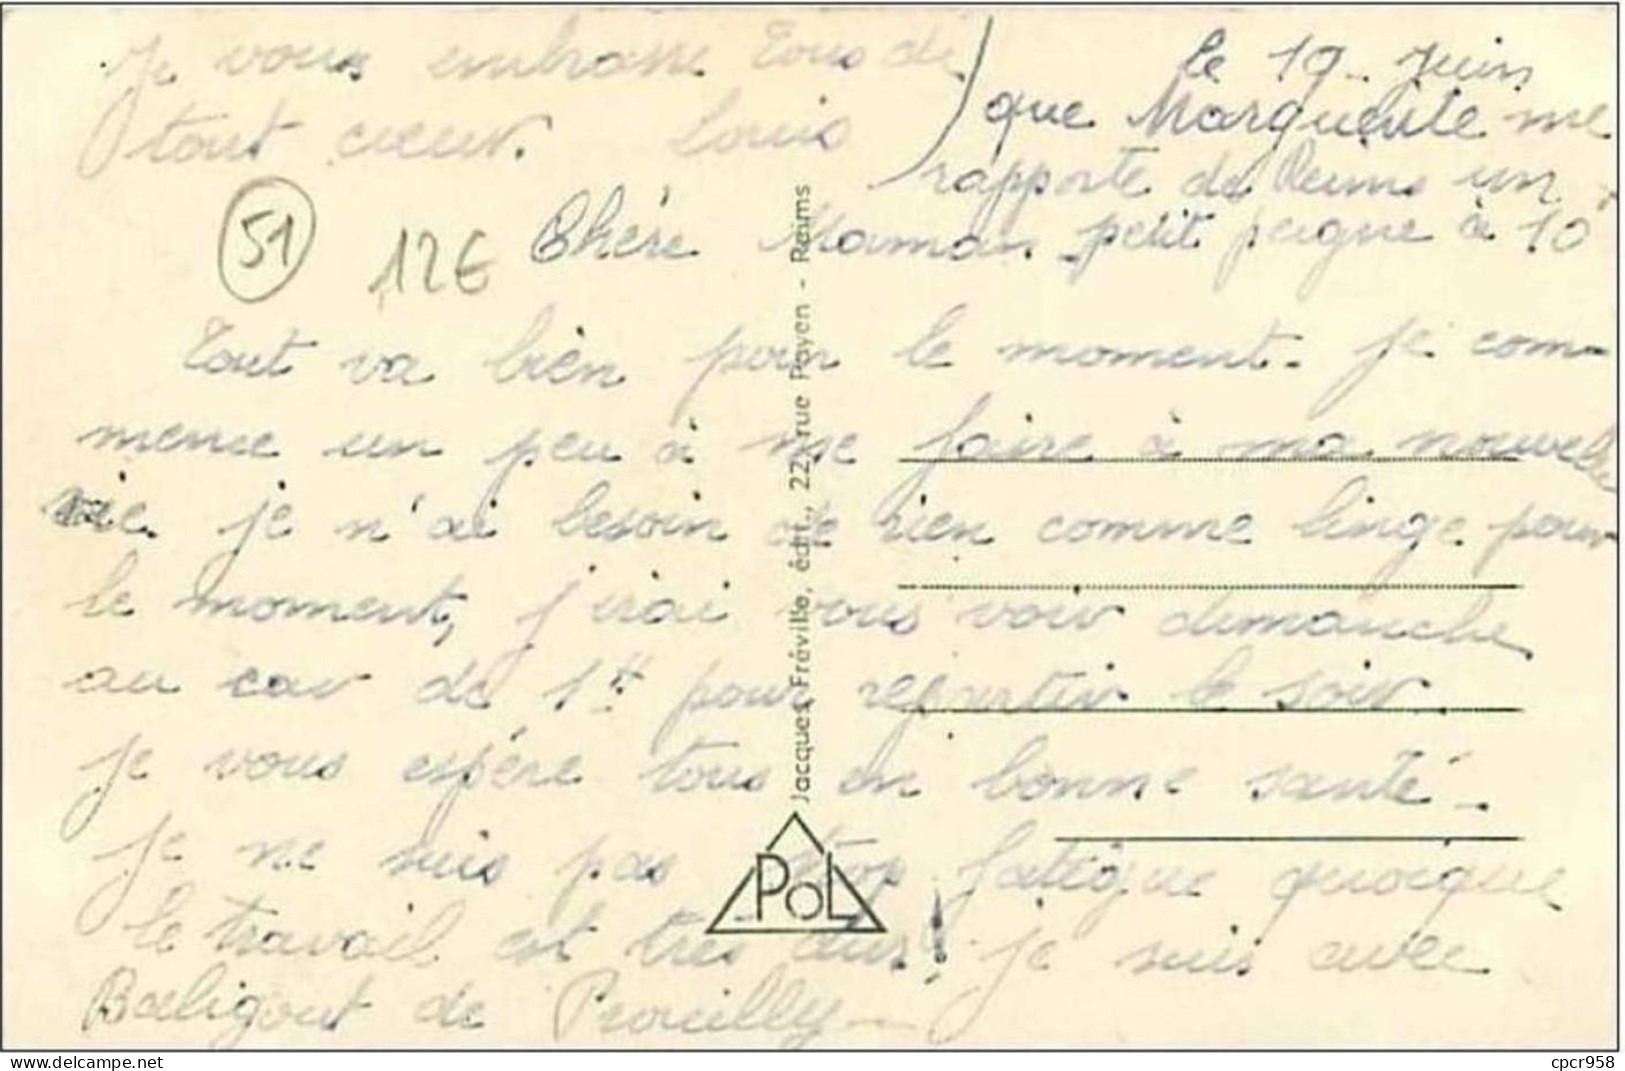 le 19 Juin
Chère Maman
Tout va bien pour le moment. Je com-
mence un peu à me faire à ma nouvelle
vie. je n'ai besoin de rien comme linge pour
le moment, j'irai vous voir dimanche
au car de 1H pour repartir le soir.
Je vous espère tous en bonne santé.
Je ne suis pas trop fatigué quoique
le travail est très dur! Je suis avec
Baligout de Prouilly
Je vous embrasse tous de
tout cœur. Louis
que Marguerite me
rapporte de Reims un
petit peigne à 10
51
12€
Jacques Fréville, édit., 22, rue Payen - Reims
POL
delcampe.net
cpcr958